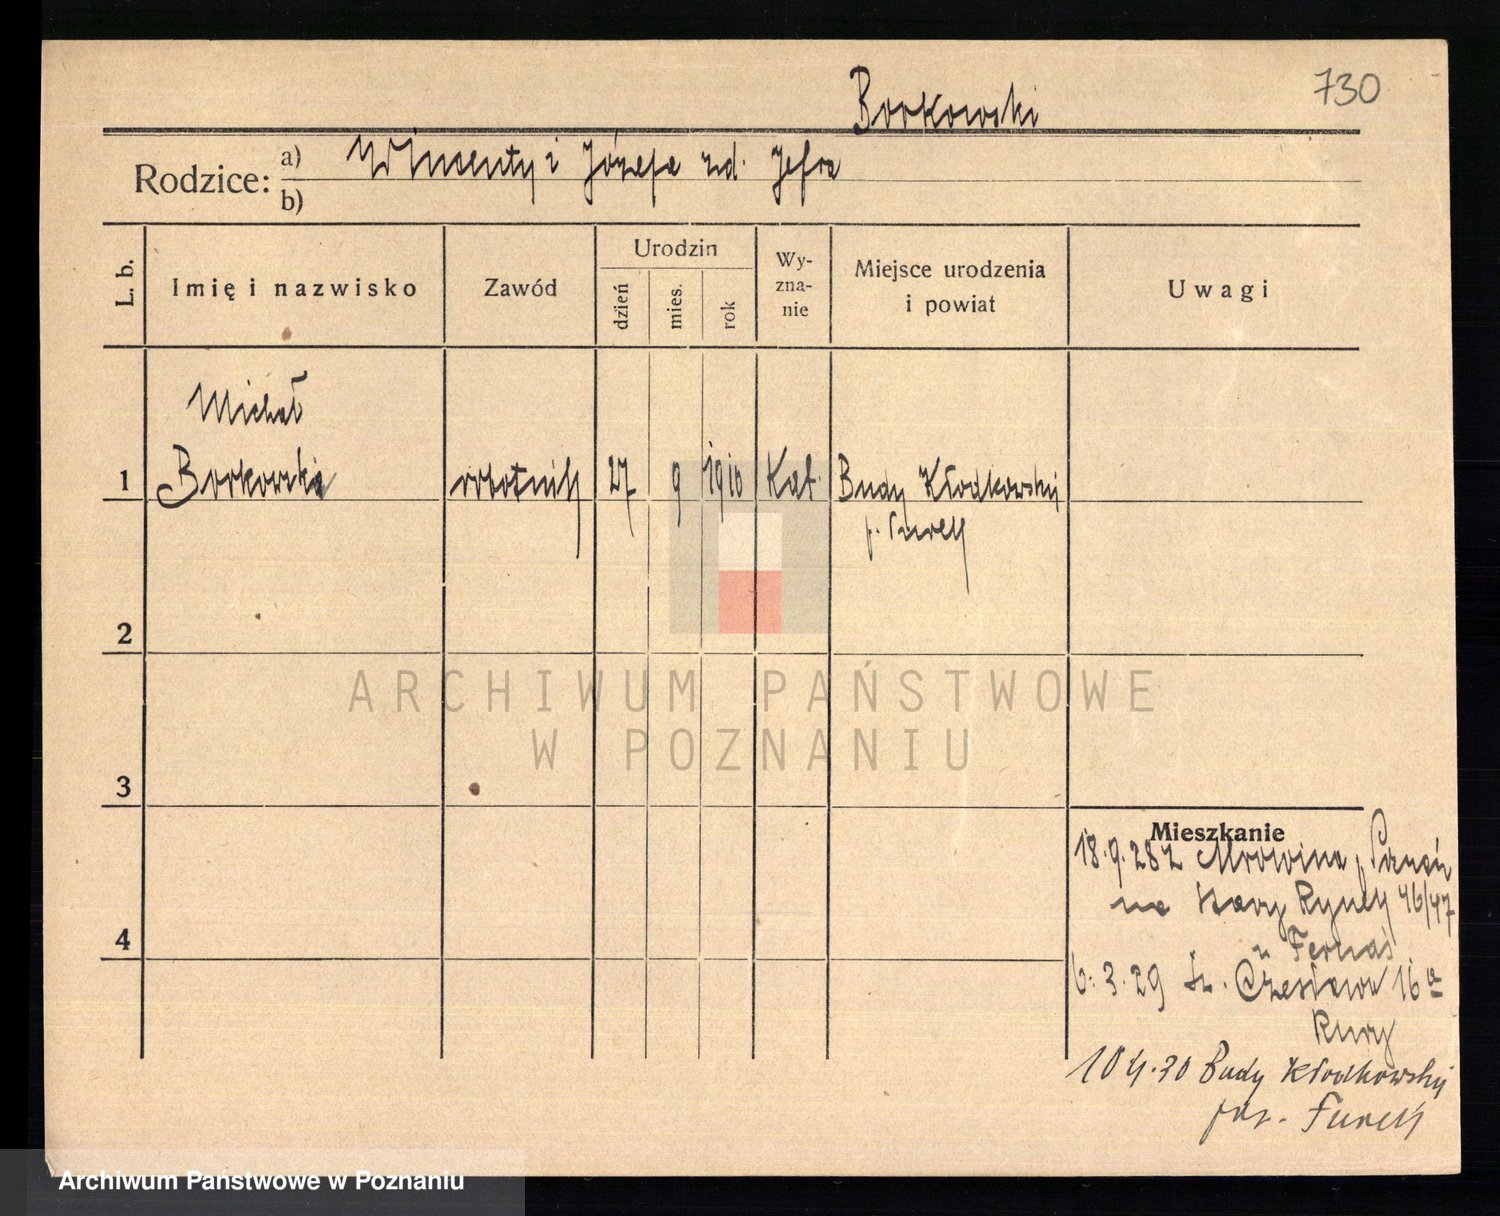 730
Borkowski
Rodzice:
a) Wincenty i Józefa zd.
b)
L. b.
Imię i nazwisko
Zawód
Urodzin
dzień
mies.
rok
Wy-
zna-
nie
Miejsce urodzenia
i powiat
Uwagi
Michał
1 Borkowski robotnik 27 9 1910 Kat. Budy Kłodkowskij
p. Turek
2
ARCHIWUM PAŃSTWOWE
W POZNANIU
3
Mieszkanie
18.9.28 z Mrowina p. Poznań
na Stary Rynek 46/47
u
4
6.3.29 Czesława 16a
10.4.30 Budy Kłodkowskij
pow. Turek
Archiwum Państwowe w Poznaniu